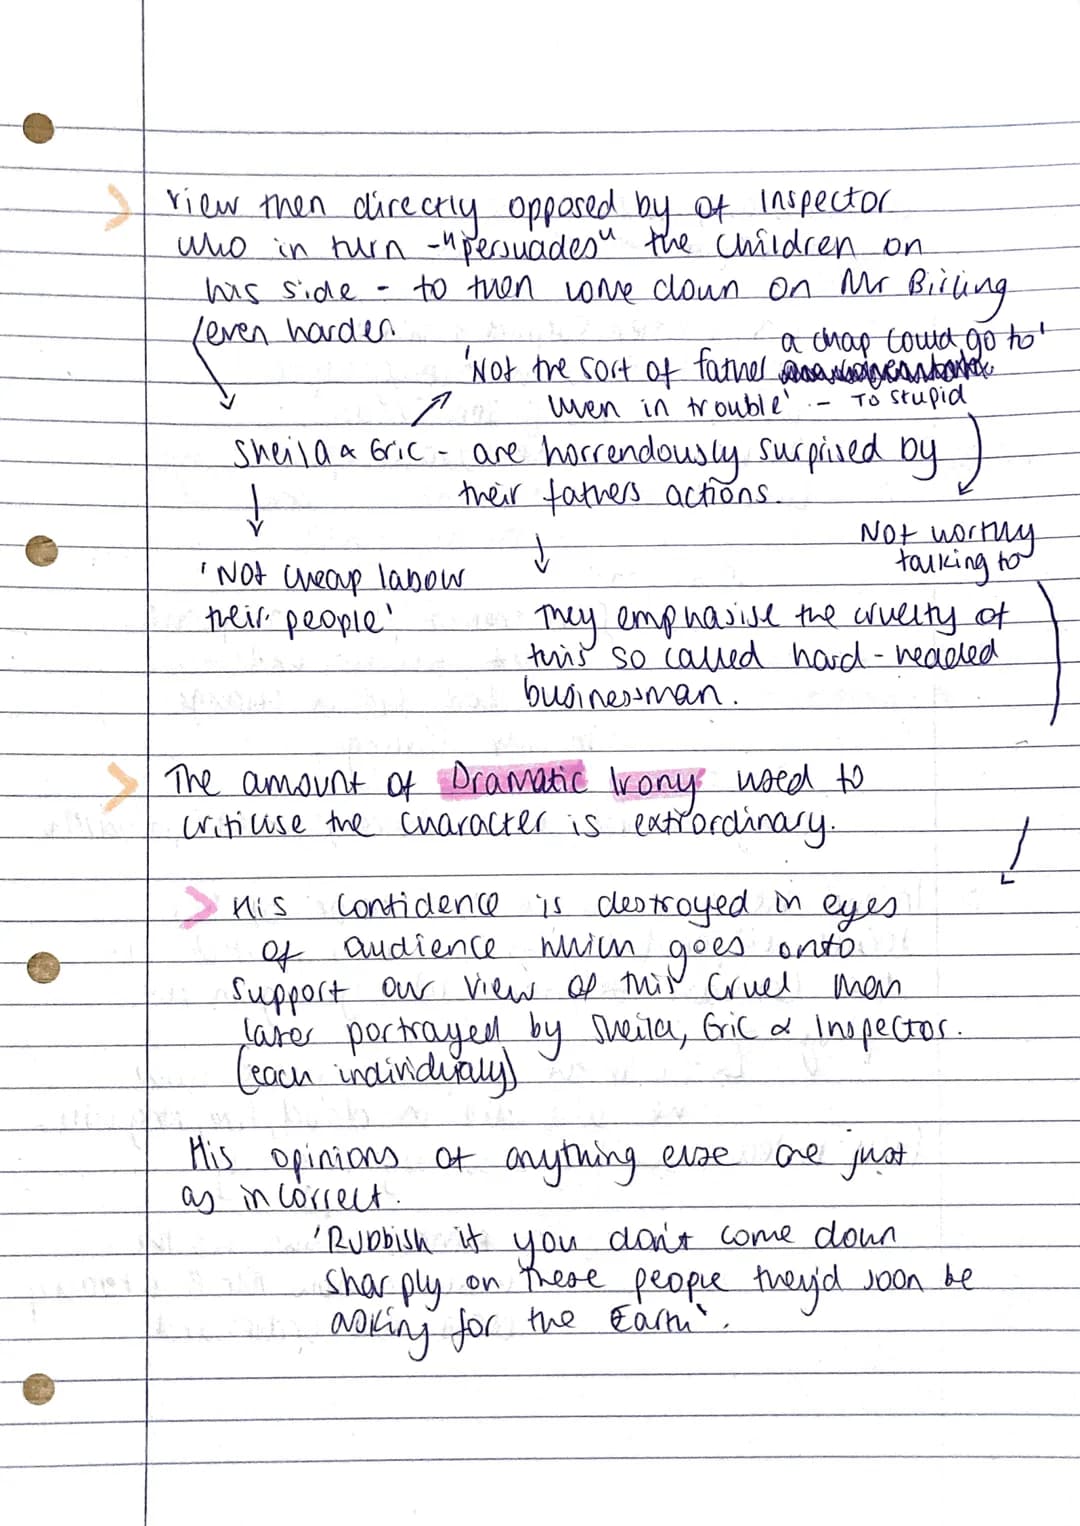 > View then directly opposed by of Inspector
who in turn - "persuades" the children on
his side - to then come down on Mr Birling
even harder.
a chap could go to'
'Not the sort of father
when in trouble' - To stupid
Sheila & Eric - are horrendously surprised by
their fathers actions.
Not worthy
talking to
'Not cheap labour
their people'
They emphasise the cruelty of
this so called hard-headed
businessman.
> The amount of Dramatic Irony used to
criticise the character is extrordinary.
> His confidence is destroyed in eyes
of audience which goes onto
support our view of this cruel man
later portrayed by Sheila, Eric & Inspector.
(each individualy)
His opinions of anything else are just
as incorrect.
'Rubbish if you don't come down
sharply on these people they'd soon be
asking for the Earth'.